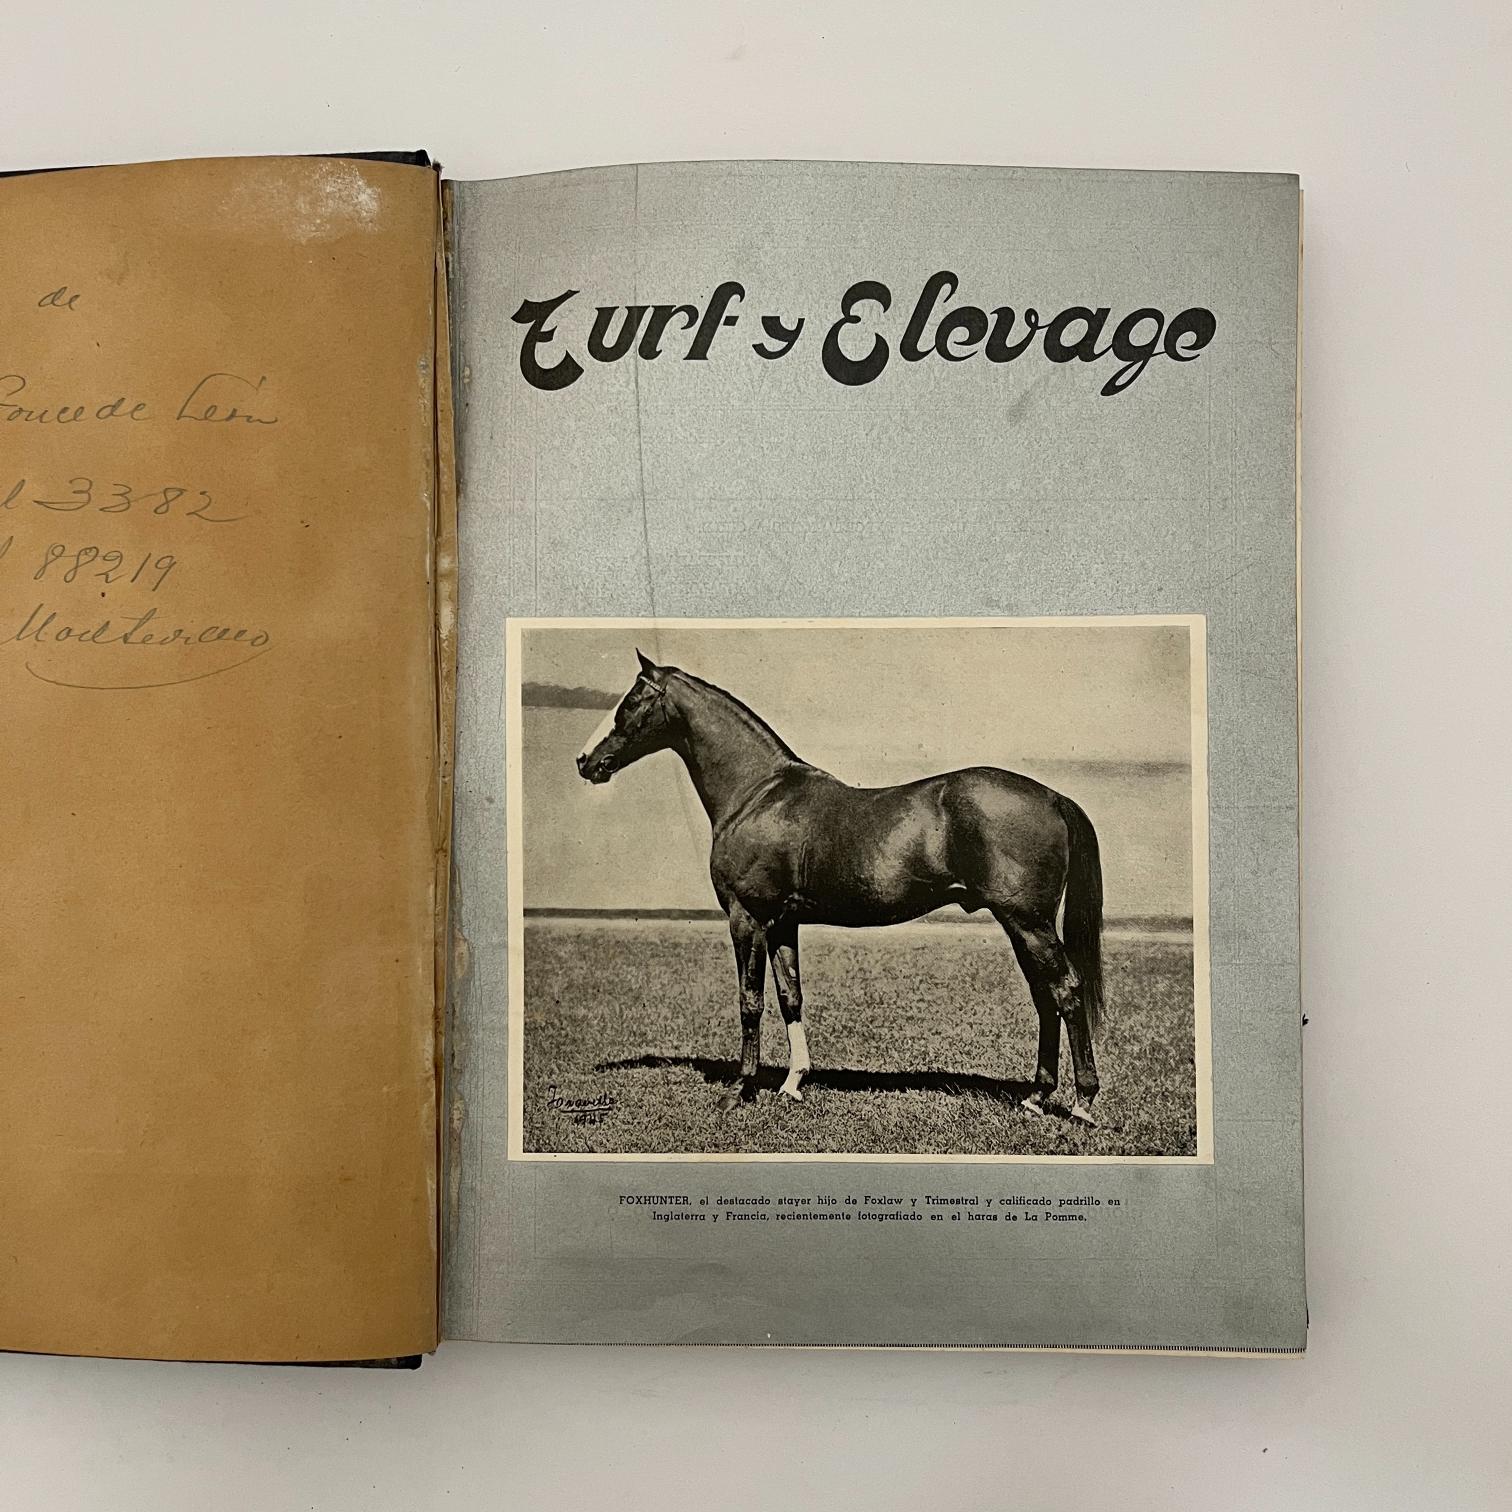 de
Ponce de León
3382
88219
Montevideo
Turf y Elevage
1945
FOXHUNTER, el destacado stayer hijo de Foxlaw y Trimestral y calificado padrillo en
Inglaterra y Francia, recientemente fotografiado en el haras de La Pomme.